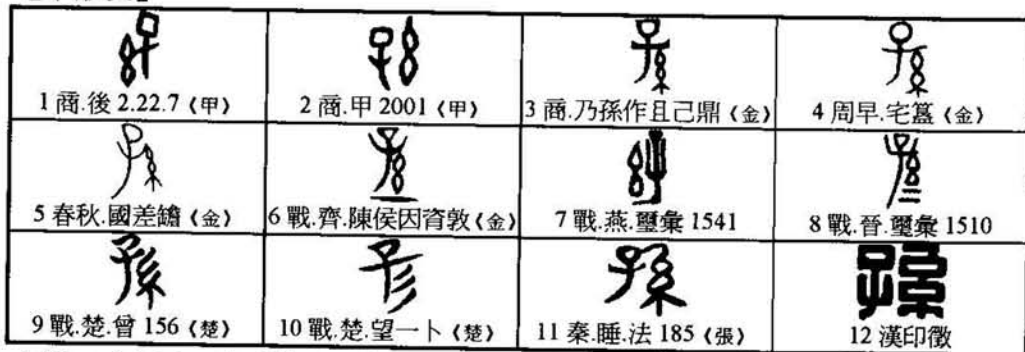 1 商.後 2.22.7《甲》 2 商.甲 2001《甲》 3 商.乃孫作且己鼎《金》 4 周早.宅簋《金》
5 春秋.國差𦉜《金》 6 戰.齊.陳侯因𬱖敦《金》 7 戰.燕.璽彙 1541 8 戰.晉.璽彙 1510
9 戰.楚.曾 156《楚》 10 戰.楚.望一卜《楚》 11 秦.睡.法 185《張》 12 漢印徵